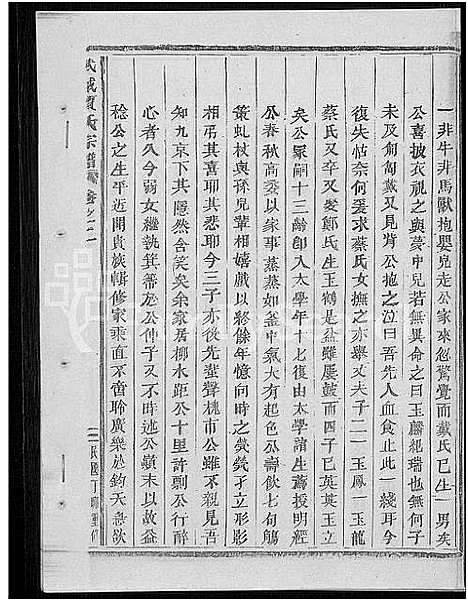 一非牛非馬獸抱嬰兒走公家來忽驚覺而戴氏已生一男矣
公喜披衣視之與夢中兒若無異命之曰玉麟紀瑞也無何子
未及匍匐戴又見背公抱之泣曰吾先人血食止此一綫耳今
復失怙奈何爰求蔡氏女撫之亦舉丈夫子二一玉鳳一玉龍
蔡氏又卒又娶鄭氏生玉鶴是盆雖屢鼓而四子已英英玉立
矣公冢嗣十三齡卽入太學年十七復由太學諸生薦授明經
公春秋高委以家事蒸蒸如釜中氣大有起色公壽飲七旬觴
策虬杖與孫兒輩相嬉戲以終餘年憶向時之煢煢孑立形影
相弔其喜耶其悲耶今三子亦後先蜚聲槐市公雖不親見吾
知九京下其隱然含笑矣余家居柳水距公十里許嗣公行醉
心者久今弱女繼執箕箒於公仲子又不時述公嶺末以故益
稔公之生平近聞貴族輯修家乘直不啻聆廣樂於鈞天急欲
武城曾氏宗譜 卷之二
民國丁